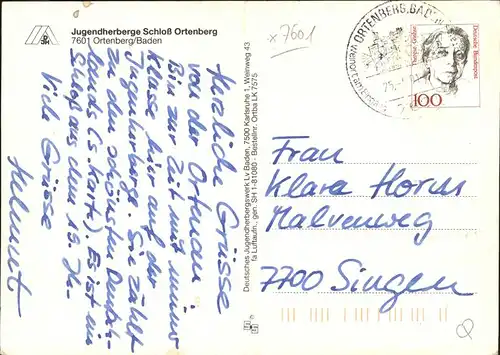 Jugendherberge Schloß Ortenberg
7601 Ortenberg/Baden
x 7601
ORTENBERG, BADEN
Deutsche Bundespost
Therese Giehse
100
Herzliche Grüsse
von der Ortenau!
Bin zur Zeit mit meiner
Klasse hier auf der
Jugendherberge. Sie zählt
zu den schönsten Deutsch-
lands (s. Karte). Es ist ein
Schloß aus dem 19. Jh.
Viele Grüsse
Helmut
Deutsches Jugendherbergswerk Lv Baden, 7500 Karlsruhe 1, Weinweg 43
fa Luftaufn. gen. SH 1-81080 · Bestellnr. Ortba LK 7575
Frau
Klara Horn
Malvenweg
7700 Singen